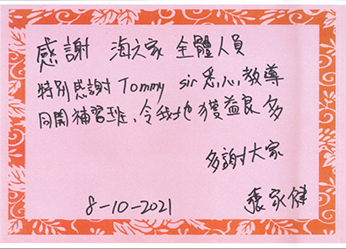 感謝 淘大家 全體人員
特別感謝 Tommy sir 悉心教導
同開補習班,令我地獲益良多
多謝大家
8-10-2021 張家健